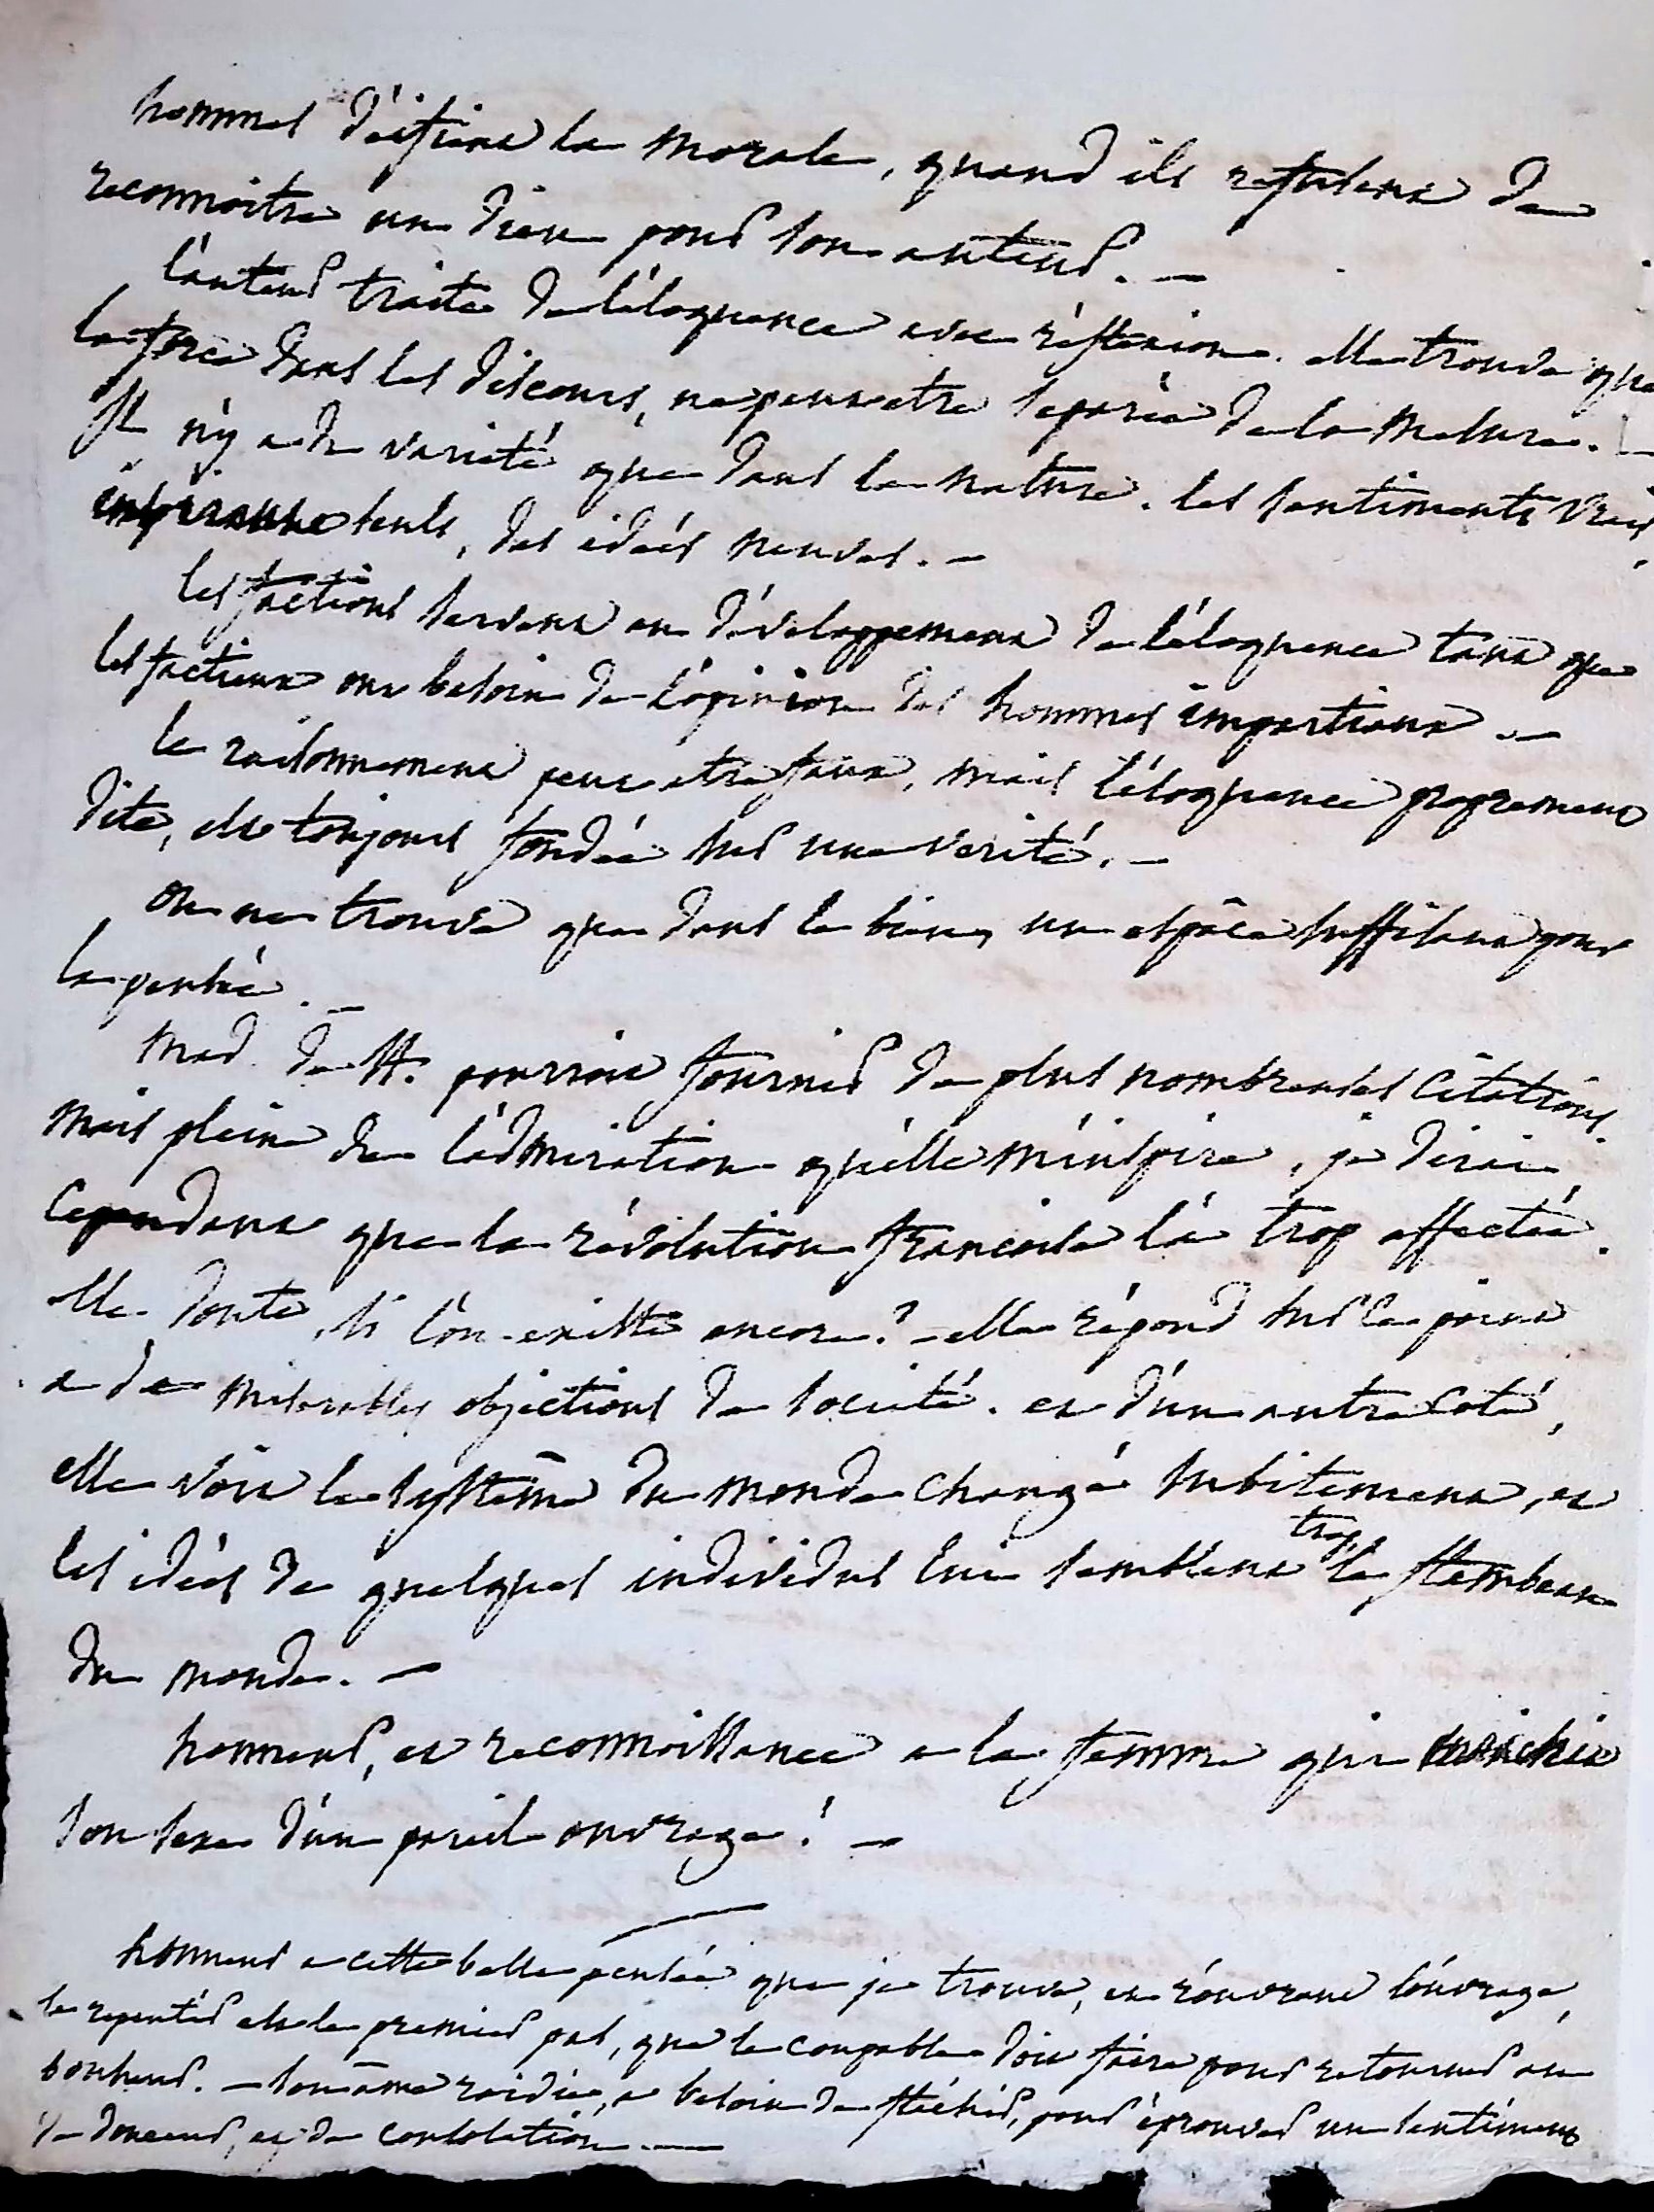 hommes d'éstiené la morale, quand ils refusent de
reconnoitre un dieu pour son auteur. —
l'auteur traite de l'éloquence avec réflexion. elle trouve que
la force dans les discours, ne peut etre separée de la mesure. —
Il n'y a de varieté que dans la nature. les sentiments vrais
inspirent seuls, des idées neuves. —
les factions servent au dévéloppement de l'éloquence tant que
les factieux ont besoin de l'opinion des hommes impartiaux. —
le raisonnement peut etre faux, mais l'éloquence proprement
dite, est toujours fondée sur une verité. —
on ne trouve que dans le bien, un espâce suffisant pour
la pensée. —
Mad. de St. pourroit fournir de plus nombreuses citations.
mais plein de l'admiration qu'elle m'inspire, je dirai
cependant que la révolution francaise l'a trop affectée.
elle doute, si l'on existe encore? — elle répond sur ce point
a de miserables objections de societé. et d'un autre coté,
elle voit le systême du monde changé subitement, et
les idées de quelques individus lui semblent trop le flambeau
du monde. —
honneur, et reconnoissance a la femme qui enrichit
son sexe d'un pareil ouvrage! —
honneur a cette belle pensée que je trouve, en r'ouvrant l'ouvrage,
le repentir est le premier pas, que le coupable doit faire pour retourner au
bonheur. — son âme roidie, a besoin de fléchir, pour éprouver un sentiment
de douceur, et de consolation. —